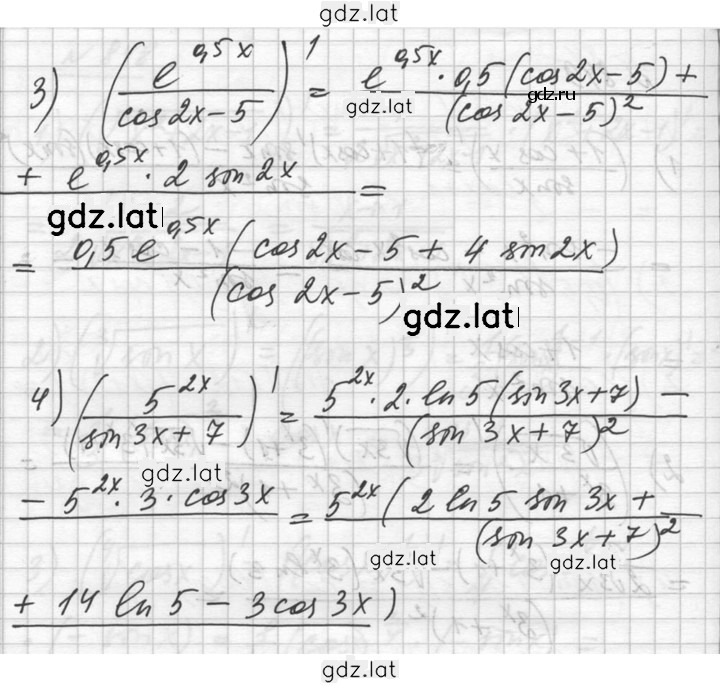 gdz.lat
3) (e^{0,5x} / (cos 2x - 5))' = (e^{0,5x} · 0,5 (cos 2x - 5) +
gdz.lat gdz.ru
(cos 2x - 5)^2
+ e^{0,5x} · 2 sin 2x =
gdz.lat
= 0,5 e^{0,5x} (cos 2x - 5 + 4 sin 2x) / (cos 2x - 5)^2
gdz.lat
4) (5^{2x} / (sin 3x + 7))' = 5^{2x} · 2 · ln 5 (sin 3x + 7) - / (sin 3x + 7)^2
gdz.lat
- 5^{2x} · 3 · cos 3x = 5^{2x} (2 ln 5 sin 3x + / (sin 3x + 7)^2
gdz.lat gdz.lat
+ 14 ln 5 - 3 cos 3x)
gdz.lat